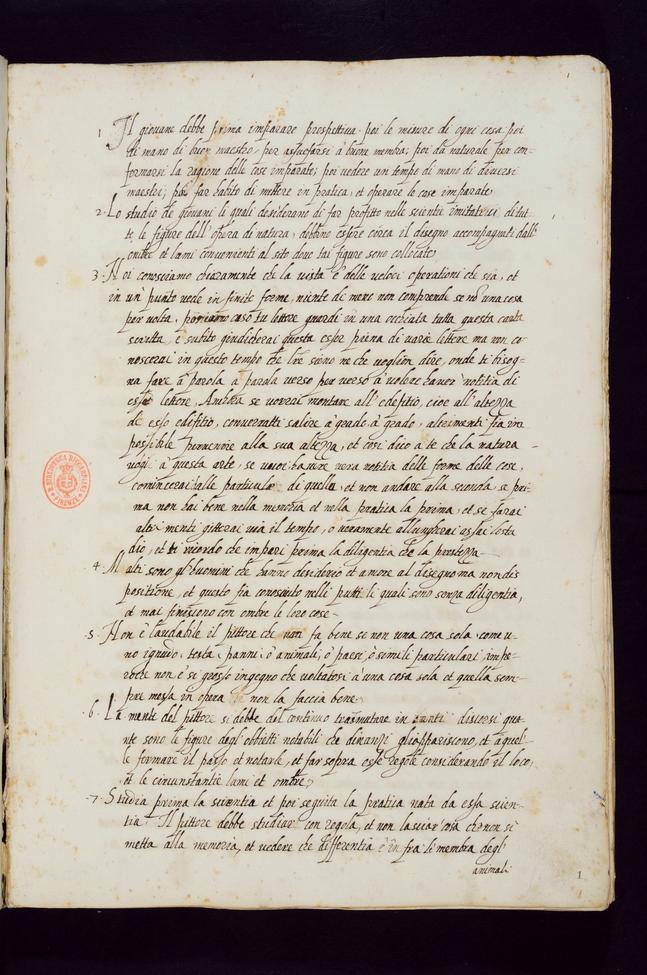 1
1 Il giovane debbe prima imparare prospettiva. poi le misure di ogni cosa. poi
di mano di buon maestro, per assuefarsi à buone membra; poi da naturale per con-
formarsi la ragione delle cose imparate; poi vedere un tempo di mano di diversi
maestri; poi far habito di mettere in pratica, et operare le cose imparate
2. Lo studio de giovani li quali desiderano di far profitto nelle scientie imitatrici di tut-
te le figure dell'opera di natura, debbino essere circa il disegno accompagnati dall'
ombre et lumi convenienti al sito dove tai figure sono collocate
3. Noi conosciamo chiaramente che la vista è delle veloci operationi che sia, et
in un' punto vede in finite forme, niente di meno non comprende se nõ una cosa
per volta. poniamo caso tu lettore guardi in una occhiata tutta questa carta
scritta, è subito giudicherai questa esser piena di varie lettere ma non co-
noscerai in questo tempo che lre sieno ne che voglion dire, onde ti bisog-
na fare à parola à parola verso per verso à volere haver notitia di
esse lettere, Ancora se vorrai montare all'edifitio, cioe all'altezza
de esso edifitio, converratti salire à grado, à grado, altrimenti fia im
possibile pervenire alla sua altezza, et cosi dico a te che la natura
vogi à questa arte, se vuoi havere vera notitia delle forme delle cose,
comincerai alle particulæ di quelle, et non andare alla seconda, se pri-
ma non hai bene nella memoria et nella pratica la prima, et se farai
altrimenti gitterai via il tempo, o veramente allungherai assai lo stu
dio, et ti ricordo che impari prima la diligentia che la prestezza
4. Molti sono gl'huomini che hanno desiderio et amore al disegno ma non dis
positione, et questo fia conosciuto nelli putti li quali sono senza diligentia,
et mai finiscono con ombre le loro cose-
5. Non è laudabile il pittore che non fa bene se non una cosa sola, come u-
no ignudo, testa, panni, ò animali, ò paesi, ò simili particulari impe-
roche non è si grosso ingegno che voltatosi à una cosa sola et quella sem-
pre messa in opera non la faccia bene
6. La mente del pittore si debbe del continuo trasmutare in tanti discorsi qua-
nte sono le figure degl'obbietti notabili che dinanzi gli appariscono, et à quel-
le fermare il passo et notarle, et far sopra esse regole considerando il loco,
et le circunstantie lumi et ombre;
7. Studia prima la scientia et poi seguita la pratica nata da essa scien-
tia. Il pittore debbe studiar con regola, et non lasciar cosa che non si
metta alla memoria, et vedere che differentia è in fra le membra degl'
animali
BIBLIOTECA RICCARDIANA
FIRENZE
1